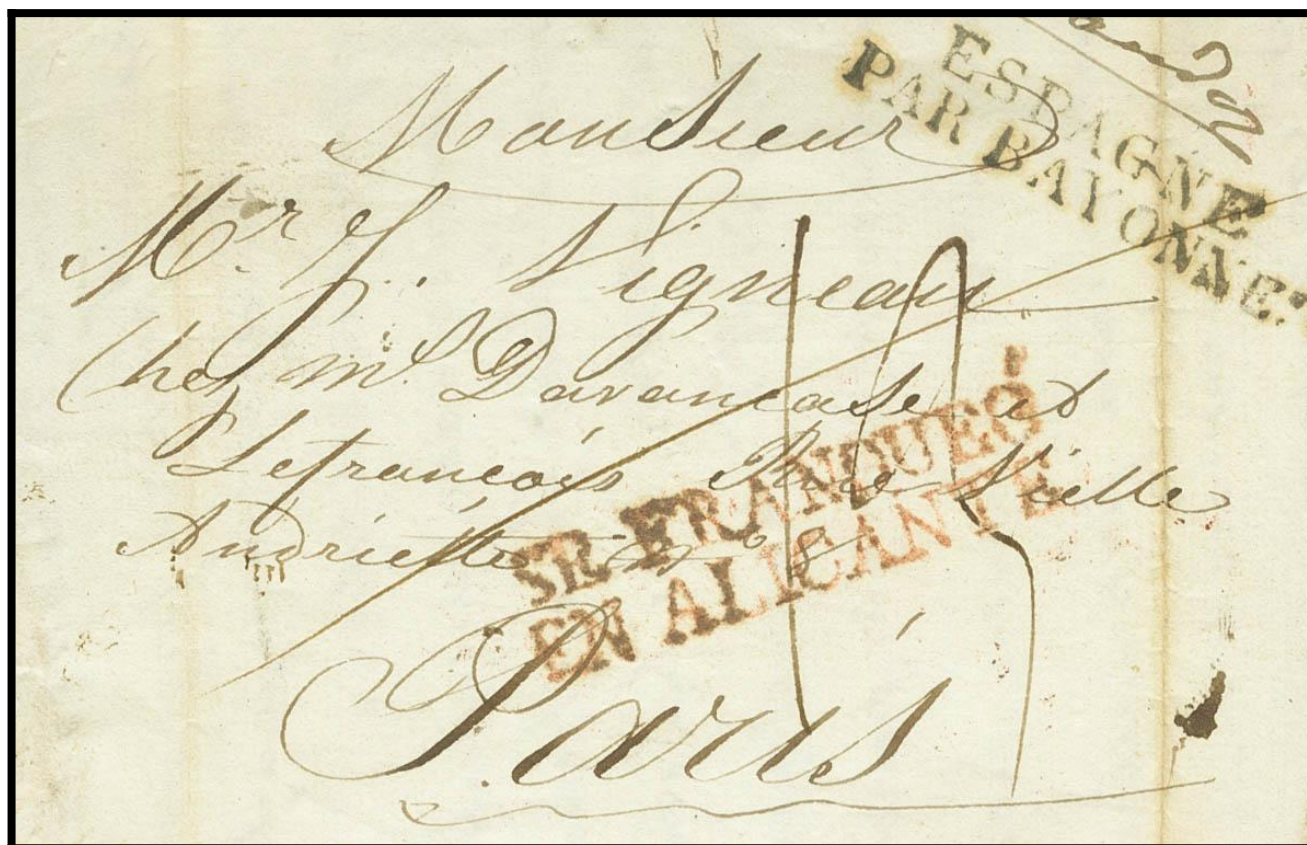 ESPAGNE
PAR BAYONNE.
Monsieur
Mr. J. Vigneau
Chez Mrs.
Lefrançois Rue Vielle
Andriette n° 8
SE. FRANQUEÓ
EN ALICANTE.
Paris